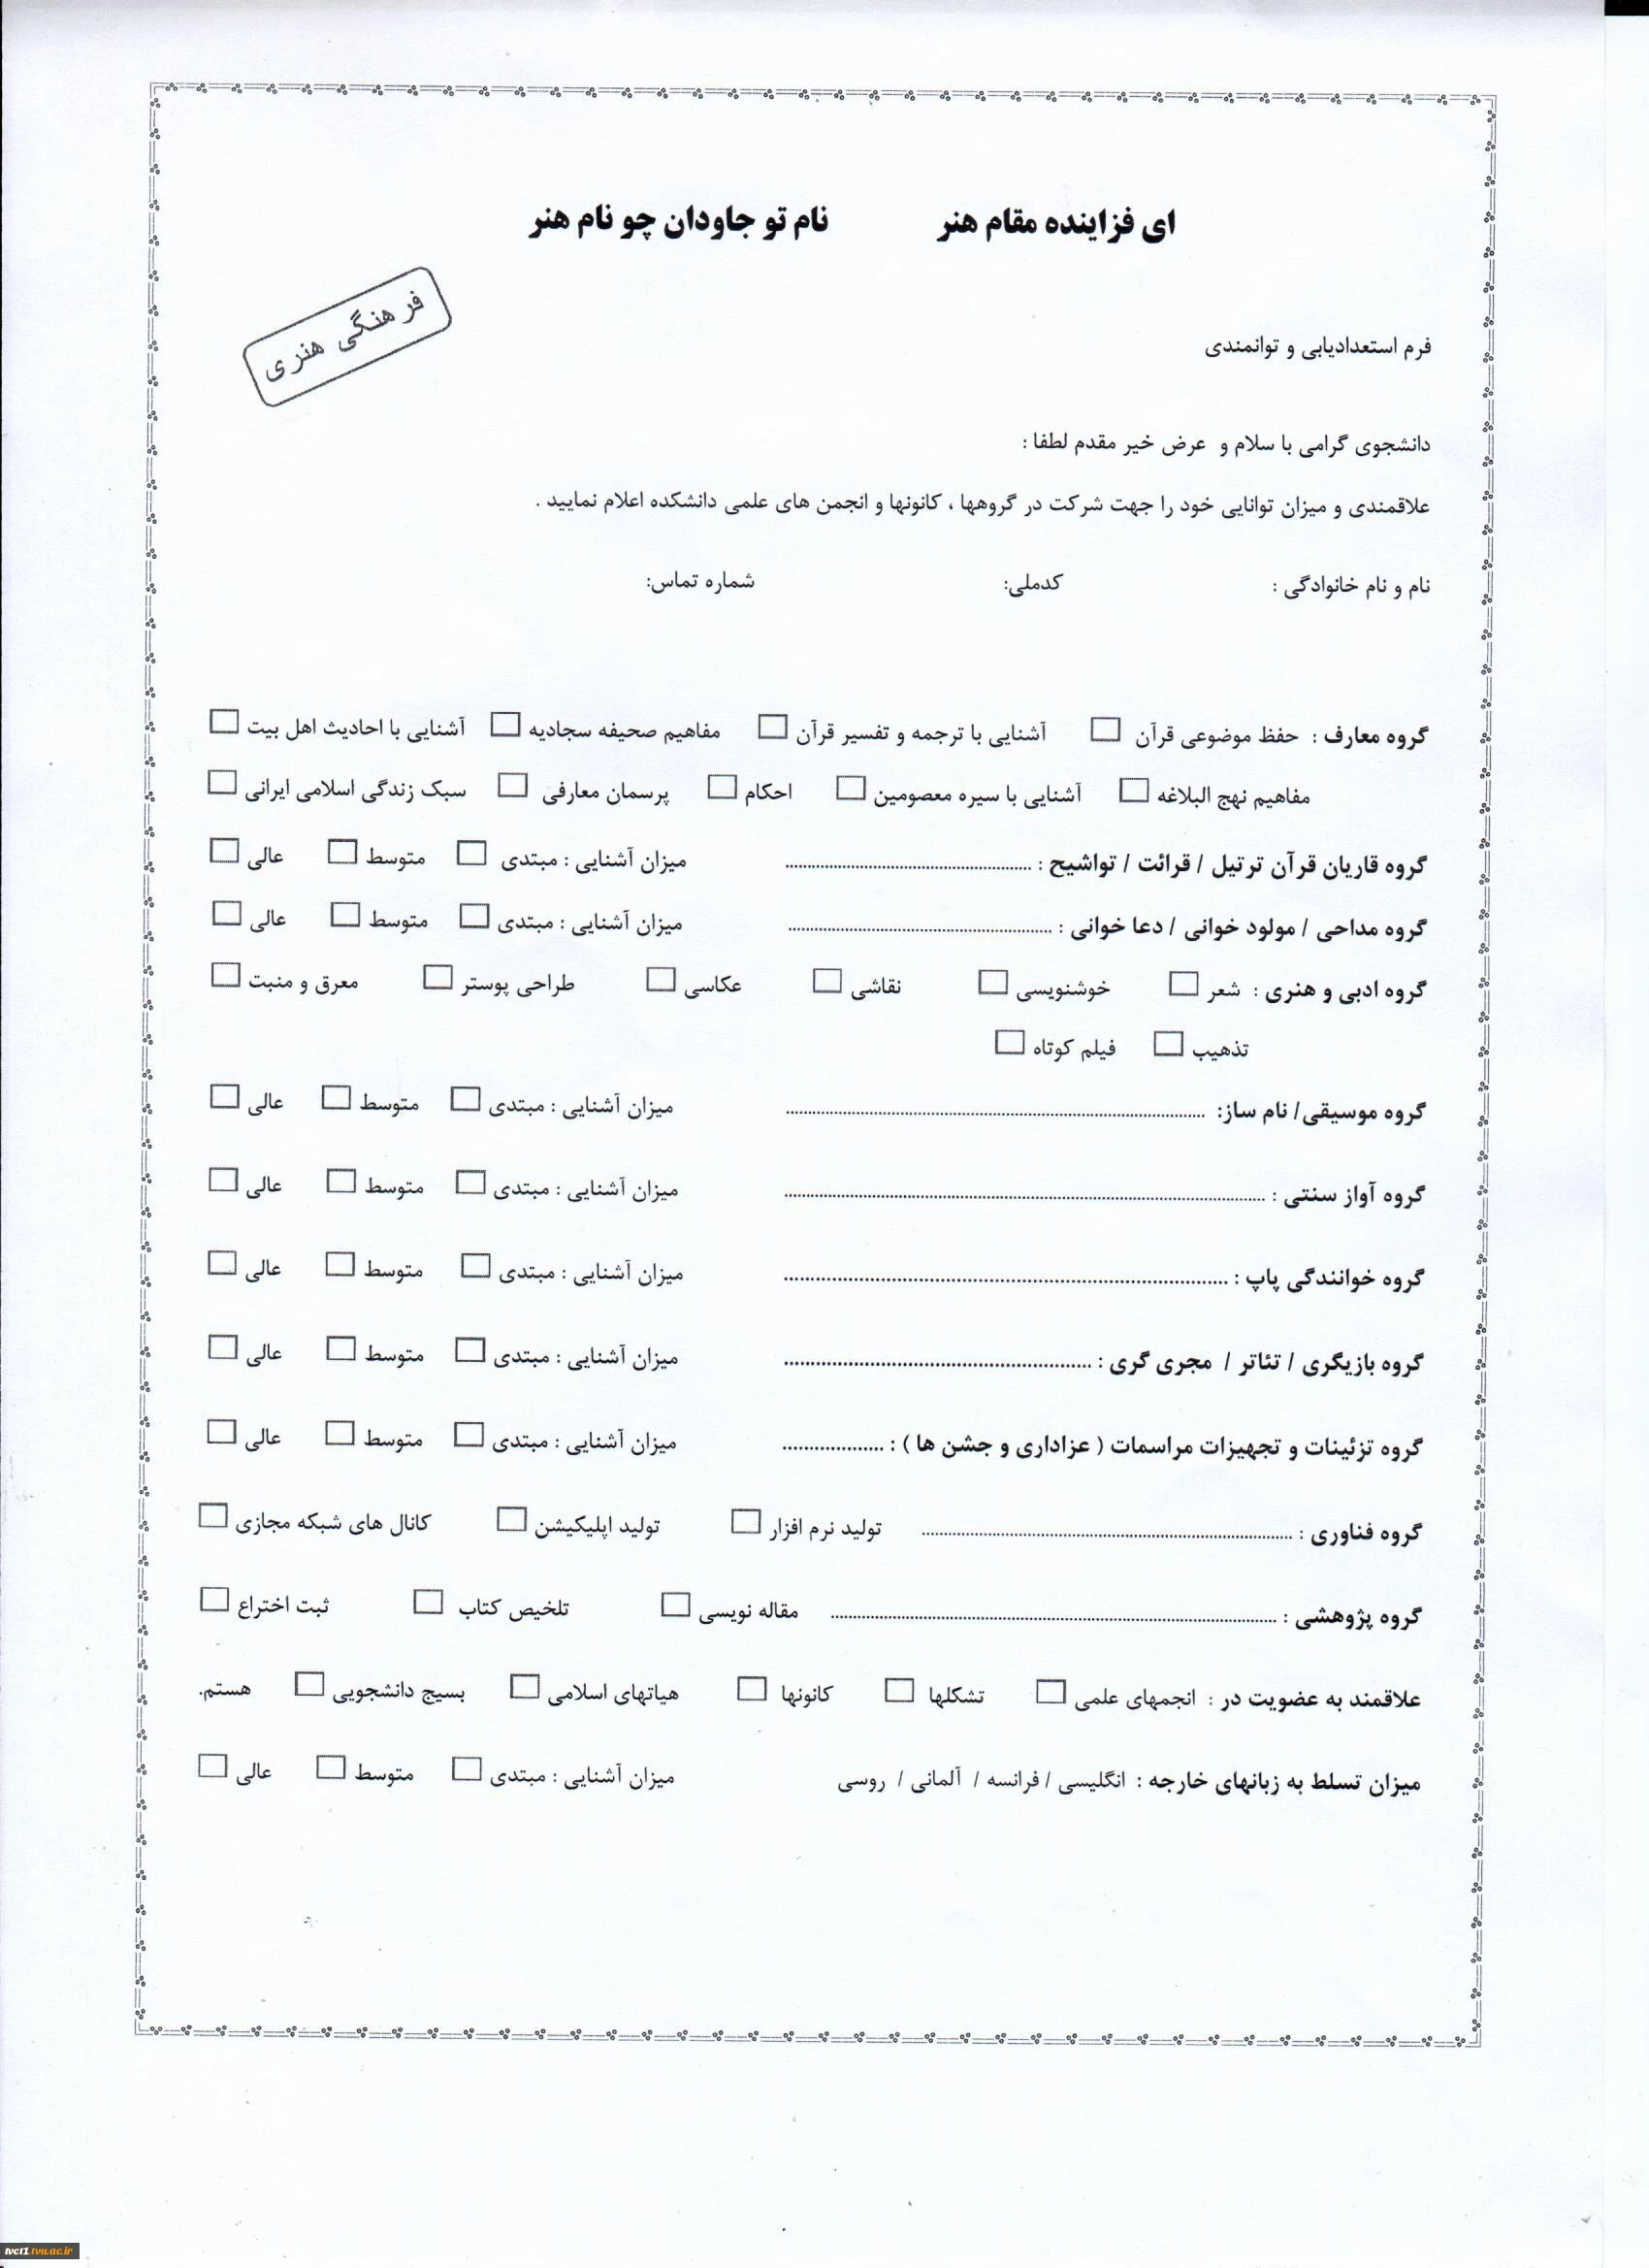 ای فزاینده مقام هنر نام تو جاودان چو نام هنر
فرهنگی هنری
فرم استعدادیابی و توانمندی
دانشجوی گرامی با سلام و عرض خیر مقدم لطفا :
علاقمندی و میزان توانایی خود را جهت شرکت در گروهها ، کانونها و انجمن های علمی دانشکده اعلام نمایید .
نام و نام خانوادگی : کدملی: شماره تماس:
گروه معارف : حفظ موضوعی قرآن □ آشنایی با ترجمه و تفسیر قرآن □ مفاهیم صحیفه سجادیه □ آشنایی با احادیث اهل بیت □
مفاهیم نهج البلاغه □ آشنایی با سیره معصومین □ احکام □ پرسمان معارفی □ سبک زندگی اسلامی ایرانی □
گروه قاریان قرآن ترتیل / قرائت / تواشیح : .................... میزان آشنایی : مبتدی □ متوسط □ عالی □
گروه مداحی / مولود خوانی / دعا خوانی : .................... میزان آشنایی : مبتدی □ متوسط □ عالی □
گروه ادبی و هنری : شعر □ خوشنویسی □ نقاشی □ عکاسی □ طراحی پوستر □ معرق و منبت □
تذهیب □ فیلم کوتاه □
گروه موسیقی/ نام ساز: .................... میزان آشنایی : مبتدی □ متوسط □ عالی □
گروه آواز سنتی : .................... میزان آشنایی : مبتدی □ متوسط □ عالی □
گروه خوانندگی پاپ : .................... میزان آشنایی : مبتدی □ متوسط □ عالی □
گروه بازیگری / تئاتر / مجری گری : .................... میزان آشنایی : مبتدی □ متوسط □ عالی □
گروه تزئینات و تجهیزات مراسمات ( عزاداری و جشن ها ) : .................... میزان آشنایی : مبتدی □ متوسط □ عالی □
گروه فناوری : .................... تولید نرم افزار □ تولید اپلیکیشن □ کانال های شبکه مجازی □
گروه پژوهشی : .................... مقاله نویسی □ تلخیص کتاب □ ثبت اختراع □
علاقمند به عضویت در : انجمهای علمی □ تشکلها □ کانونها □ هیاتهای اسلامی □ بسیج دانشجویی □ هستم.
میزان تسلط به زبانهای خارجه : انگلیسی / فرانسه / آلمانی / روسی میزان آشنایی : مبتدی □ متوسط □ عالی □
tvct1.tvu.ac.ir